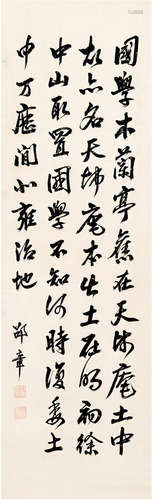 國學本蘭亭舊在天師庵土中
故亦名天師庵本出土在明初徐
中山取置國學不知何時復委土
中万歷間北雍治地
邵章